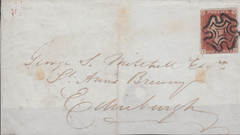 George S. Mitchell Esqre
St Anns Brewery
Edinburgh